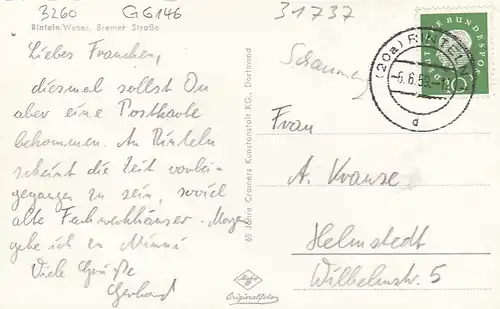 3260 G6146 31737
Rinteln/Weser, Bremer Straße
Liebes Frauchen,
diesmal sollst Du
aber eine Postkarte
bekommen. An Rinteln
scheint die Zeit vorbei-
gegangen zu sein, soviel
alte Fachwerkhäuser. Morgen
gehe ich zu Minni
Viele Grüße
Gerhard
60 Jahre Cramers Kunstanstalt KG., Dortmund
Originalfoto
Schaumburg
DEUTSCHE BUNDESPOST
10
(20a) RINTELN
-6.6.59.-
d
Frau
A. Krause
Helmstedt
Wilhelmstr. 5